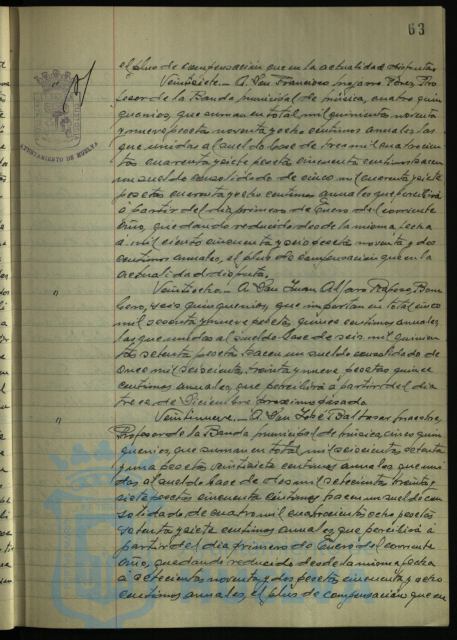 63
el plus de compensación que en la actualidad disfruta.
Veintisiete.- A Don Francisco Pérez, Pro-
fesor de la Banda municipal de música, cuatro quin-
quenios, que suman en total, mil quinientas noventa
y nueve pesetas noventa y ocho centimos anuales, las
que unidas al sueldo base de tres mil cuatrocien-
tas cuarenta y siete pesetas cincuenta centimos hacen
un sueldo consolidado de cinco mil cuarenta y siete
pesetas cuarenta y ocho centimos anuales que percibirá
á partir del dia primero de Enero del corriente
año, quedando reducido desde la misma fecha
a mil ciento cincuenta y seis pesetas noventa y dos
centimos anuales, el plus de compensación que en la
actualidad disfruta.
AYUNTAMIENTO DE HUELVA
Veintiocho.- A Don Juan Alfaro Bom-
bero, seis quinquenios, que importan en total cinco
mil sesenta y nueve pesetas, quince centimos anuales,
las que unidas al sueldo base de seis mil quinien-
tas setenta pesetas hacen un sueldo consolidado de
once mil seiscientas treinta y nueve pesetas quince
centimos anuales, que percibirá a partir del dia
trece de Diciembre proximo pasado.
Veintinueve.- A Don José Baltasar Maestre,
Profesor de la Banda municipal de música, cinco quin-
quenios, que suman en total, mil seiscientas setenta
y una pesetas veintisiete centimos anuales que uni-
das al sueldo base de dos mil setecientas treinta y
siete pesetas cincuenta centimos hacen un sueldo con-
solidado de cuatro mil cuatrocientas ocho pesetas
setenta y siete centimos anuales que percibirá á
partir del dia primero de Enero del corriente
año, quedando reducido desde la misma fecha
á setecientas noventa y dos pesetas cincuenta y ocho
centimos anuales, el plus de compensación que en